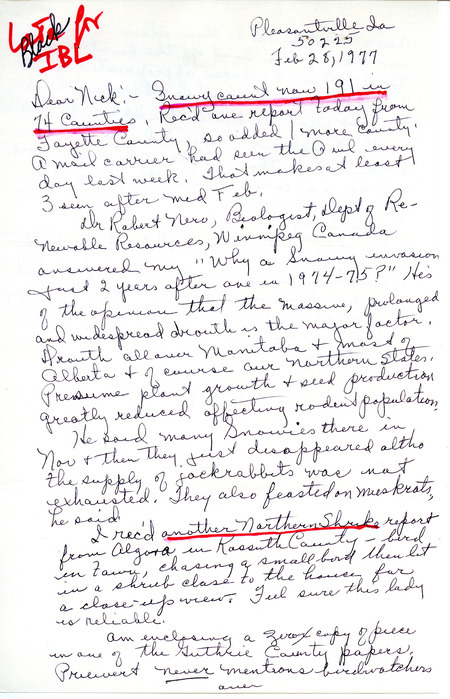 List for
Black
IBL
Pleasantville Ia
50225
Feb 28, 1977
Dear Nick:- Snowy count now 191 in
74 Counties. Rec'd one report today from
Fayette County so added 1 more county.
A mail carrier had seen the Owl every
day last week. That makes at least
3 seen after mid Feb.
Dr Robert Nero, Biologist, Dept of Re-
newable Resources, Winnipeg Canada
answered my "Why a Snowy invasion
just 2 years after one in 1974-75?" He's
of the opinion that the massive, prolonged
and widespread drouth is the major factor.
Drouth all over Manitoba & most of
Alberta & of course our Northern States.
Presume plant growth & seed production
greatly reduced affecting rodent population.
He said many Snowies there in
Nov & then they just disappeared altho
the supply of jackrabbits was not
exhausted. They also feasted on muskrats,
he said
I rec'd another Northern Shrike report
from Algona in Kossuth County - bird
in town, chasing a small bird then lit
in a shrub close to the house for
a close-up view. Feel sure this lady
is reliable.
Am enclosing a zerox copy of piece
in one of the Guthrie County papers.
never mentions birdwatchers
over